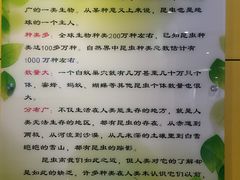 广的一类生物，从某种意义上来说，昆虫也是地
球的一个主人。
种类多：全球生物种类200万左右，已知昆虫种
类达100多万种，自然界中昆虫总数估计有
1000万种左右。
数量大：一个白蚁巢穴就有几万甚至几十万只个
体，蜜蜂、蚂蚁、蝴蝶等其他昆虫的个体数量也很大。
分布广：不仅生活在人类能生存的地方，就是人
类无法生存的地区，都有昆虫的存在。从赤道到
两极，从河流到沙漠，从几米深的土壤里到白雪
皑皑的雪山，都有昆虫的踪影。
昆虫离我们如此之近，但人类对它的了解却
是如此的缺乏，许多种类在人类未认识它们以前